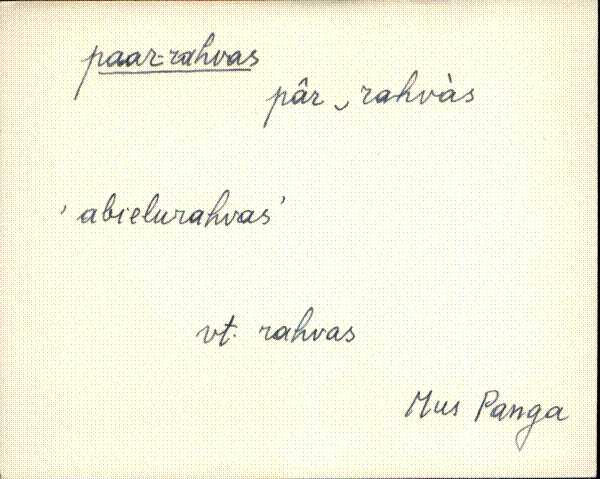 paar-rahvas
pâr ‿ rahvàs
'abielurahvas'
vt. rahvas
Mus Panga